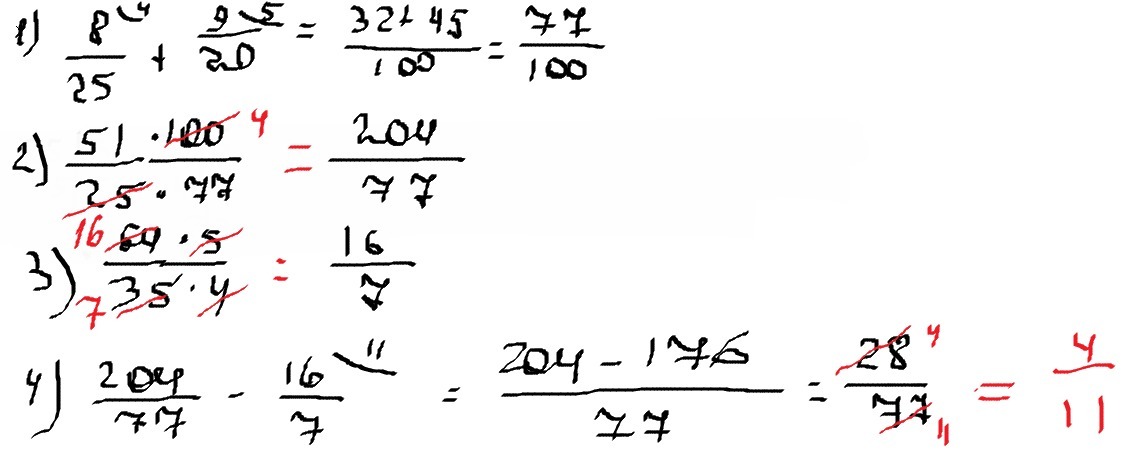 1) 8/25 ⁴ + 9/20 ⁵ = 32+45/100 = 77/100
2) 51·100/25·77 4 = 204/77
3) 16 64·5/7 35·4 = 16/7
4) 204/77 - 16/7 ¹¹ = 204-176/77 = 28/77 4/11 = 4/11